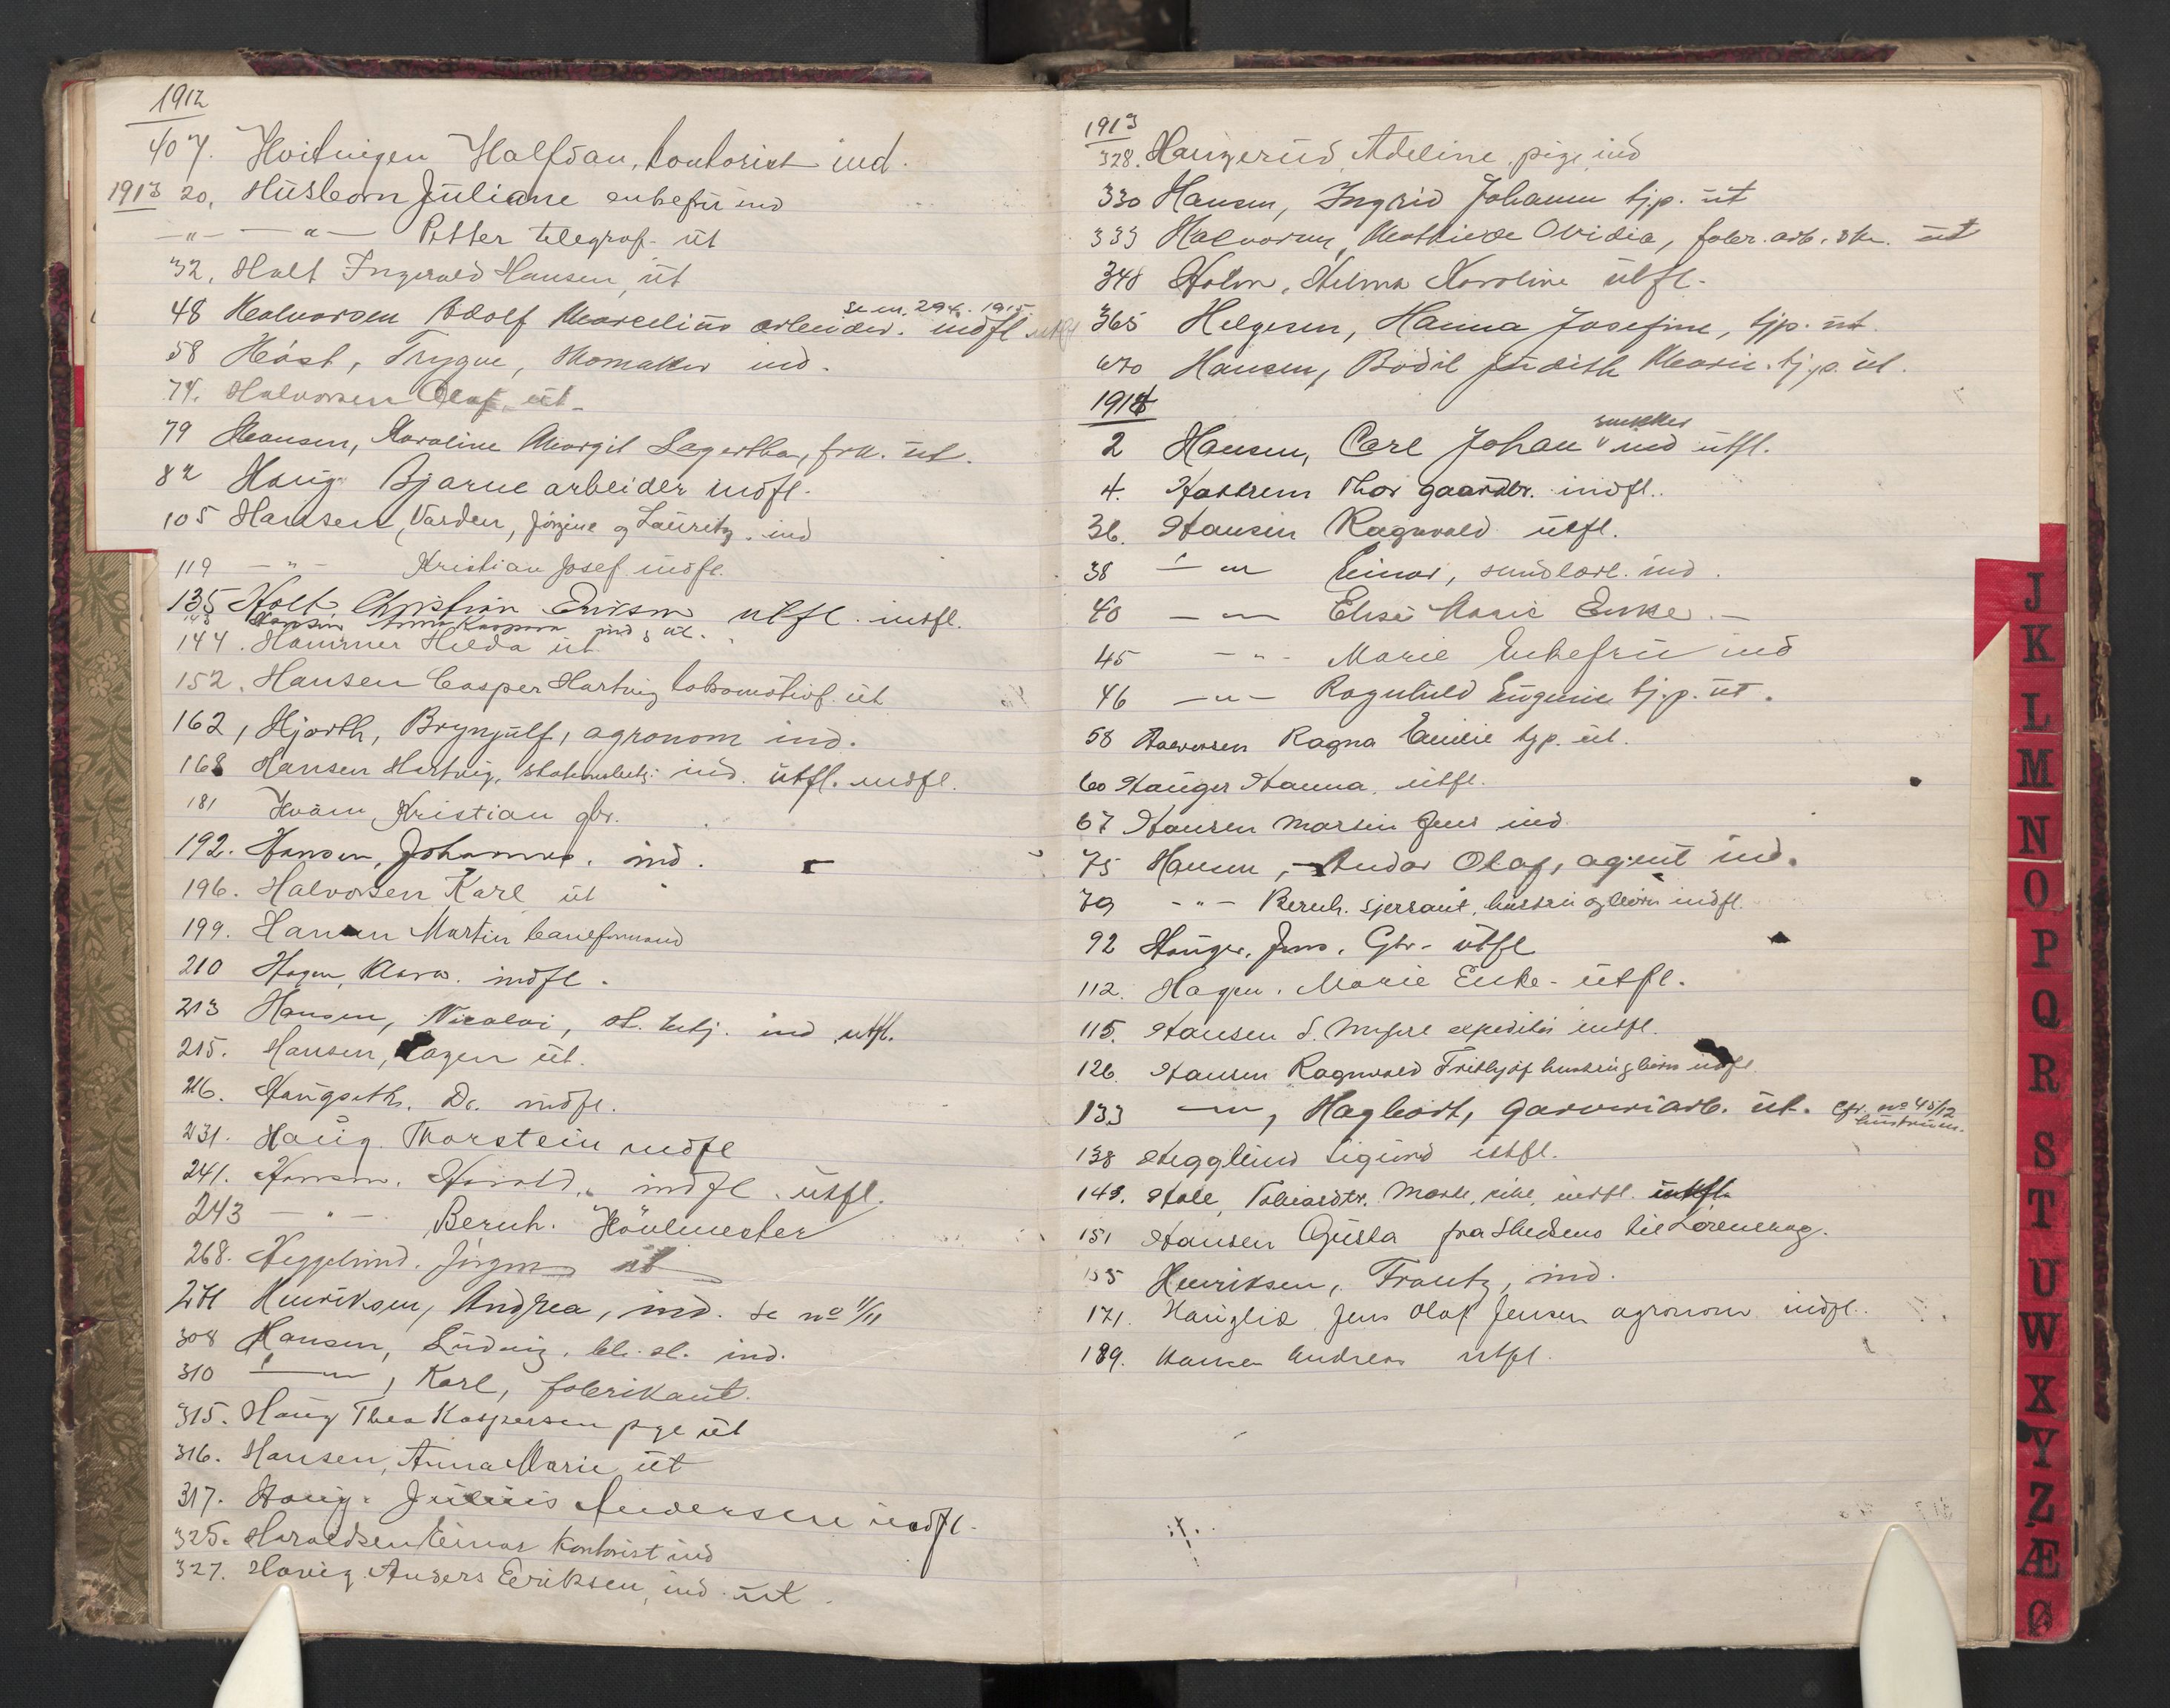 1912
407. Hvitingen Halfdan, kontorist ind.
1913 20. Husborn Juliane enkefru ind
-"- -"- Petter telegraf. ut
32. Holt Ingevald Hansen, ut
se nr. 294. 1915.
48 Halvorsen Adolf Marcelius arbeider. indfl utfl
58 Høst, Trygve, skomaker ind.
74. Halvorsen Olaf ut.
79 Hansen, Karoline Margit Lagertha, frk. ut.
82 Haug Bjarne arbeider indfl.
105 Hansen, Varden, Jörgine og Lauritz. ind
119 -"- Kristian Josef indfl.
135 Holt, Christian utfl. indfl.
143 Hansen Anna Kaspara ind & ut.
144. Hammer Hilda ut
152. Hansen Casper Hartvig lokomotivf. ut
162, Hjorth, Brynjulf, agronom ind.
168 Hansen Hartvig, stationsbetj. ind. utfl. indfl.
181 Hvam, Kristian gbr.
192. Hansen, Johannes. ind.
196. Halvorsen Karl ut
199. Hansen Martin baneformand
210 Hagen, Klara. indfl.
213 Hansen, Nicolai, st. betj. ind utfl.
215. Hansen, Hagen ut.
216. Haugseth. Dr. indfl.
231. Haug. Thorstein indfl
241. Hansen. Harald. indfl. utfl.
243 -"- Bernh. Hövlmester
268. Hegglund. Jörgen ut
271 Henriksen, Andrea, ind. se no 11/11
308 Hansen, Ludvig. bl. sl. ind.
310 -"-, Karl, fabrikant.
315. Haug Thea Kaspersen pge ut
316. Hansen, Anna Marie ut
317. Haug. Julius Andersen indfl.
325. Haraldsen Einar kontorist ind
327. Hovig. Anders Eriksen, ind. ut.
1913
328. Haugerud Adeline. pige ind
330 Hansen, Ingrid Johanne tj.p. ut
333 Halvorsen, Mathilde Ovidia, fabr. arb. ske. ut
348 Holm, Helma Karoline utfl.
365 Helgesen, Hanna Josefine, tjp. ut.
670 Hansen, Bodil Judith Marie. tj.p. ut.
1914
snekker
2 Hansen, Carl Johan ind utfl.
4. Hattrem Thor gaardbr. indfl.
36. Hansen Ragnvald utfl.
38 -"- Einar, sundlarl. ind.
40 -"- Elise Marie Enke. -
45 -"- Marie Enkefru ind
46 -"- Ragnhild Eugenie tj.p. ut.
58 Halvorsen Ragna Emilie tjp. ut.
60 Hauger Hanna. utfl.
67 Hansen Martin Jens ind
75 Hansen, Andor Olaf, agent ind.
79 -"- Bernh. sjersant, hustru og börn indfl.
92 Hauger, Jens. Gbr. utfl
112. Hagen. Marie Enke. utfl.
115. Hansen S. expeditör indfl.
126. Hansen Ragnvald Frithjof hustru og börn indfl.
133 -"-, Hagbart, garveriarb. ut. cfr. no 45/12 hustruen.
138 Hegglund Sigurd utfl.
143. Hole, Tobiasdtr. Marte, indfl. utfl.
151 Hansen Gusta fra Skedsmo til Lörenskog.
155 Henriksen, Frantz, ind.
171. Hauglid Jens Olaf Jensen agronom indfl.
189. Hansen Andreas utfl.
J
K
L
M
N
O
P
Q
R
S
T
U
W
X
Y
Z
Æ
Ø